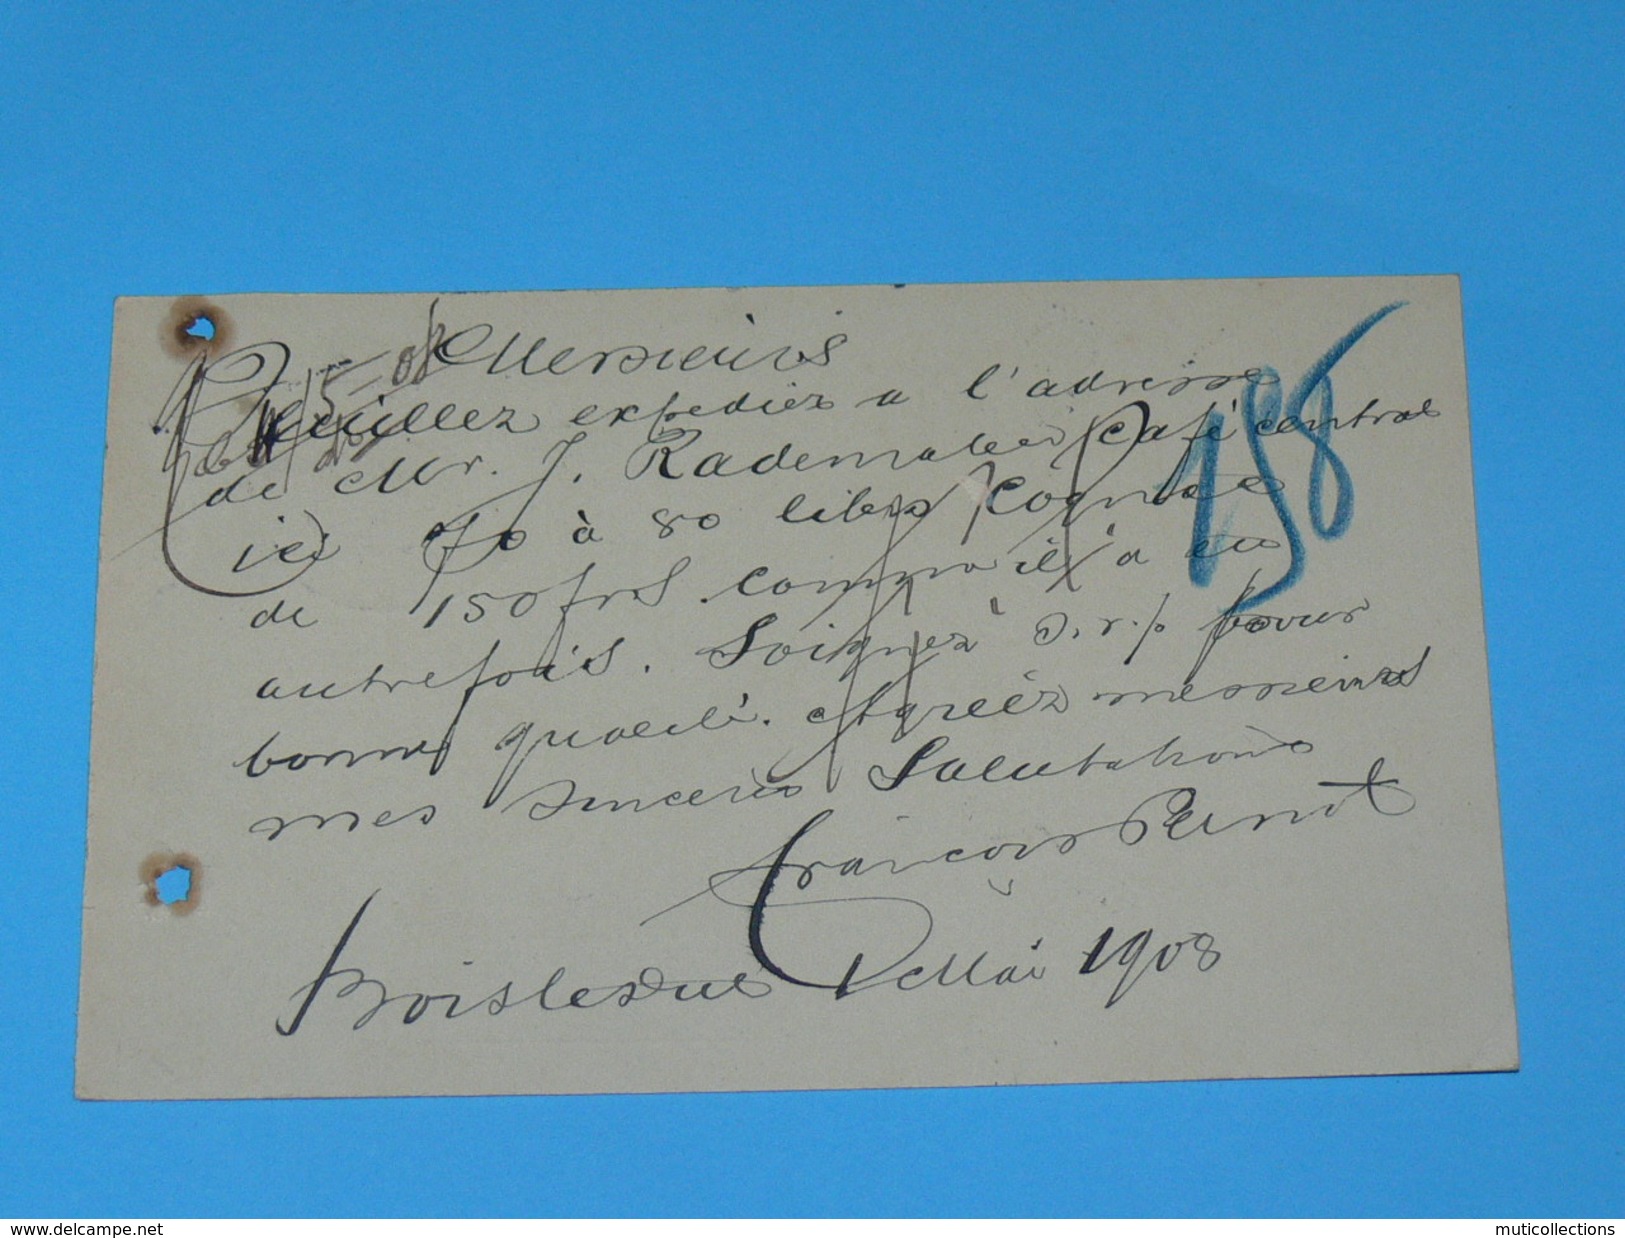 Messieurs
5-08
Veuillez expedier a l'adresse
de Mr. J. Rademaker Café central
ici 70 à 80 litres Cognac
de 150 frs. comme il'a eu
autrefois. Soignez S.v.p. pour
bonne qualité. Agréez messieurs
mes sincères Salutations
François Pernot
Boisleduc 1 Mai 1908
198
www.delcampe.net
muticollections